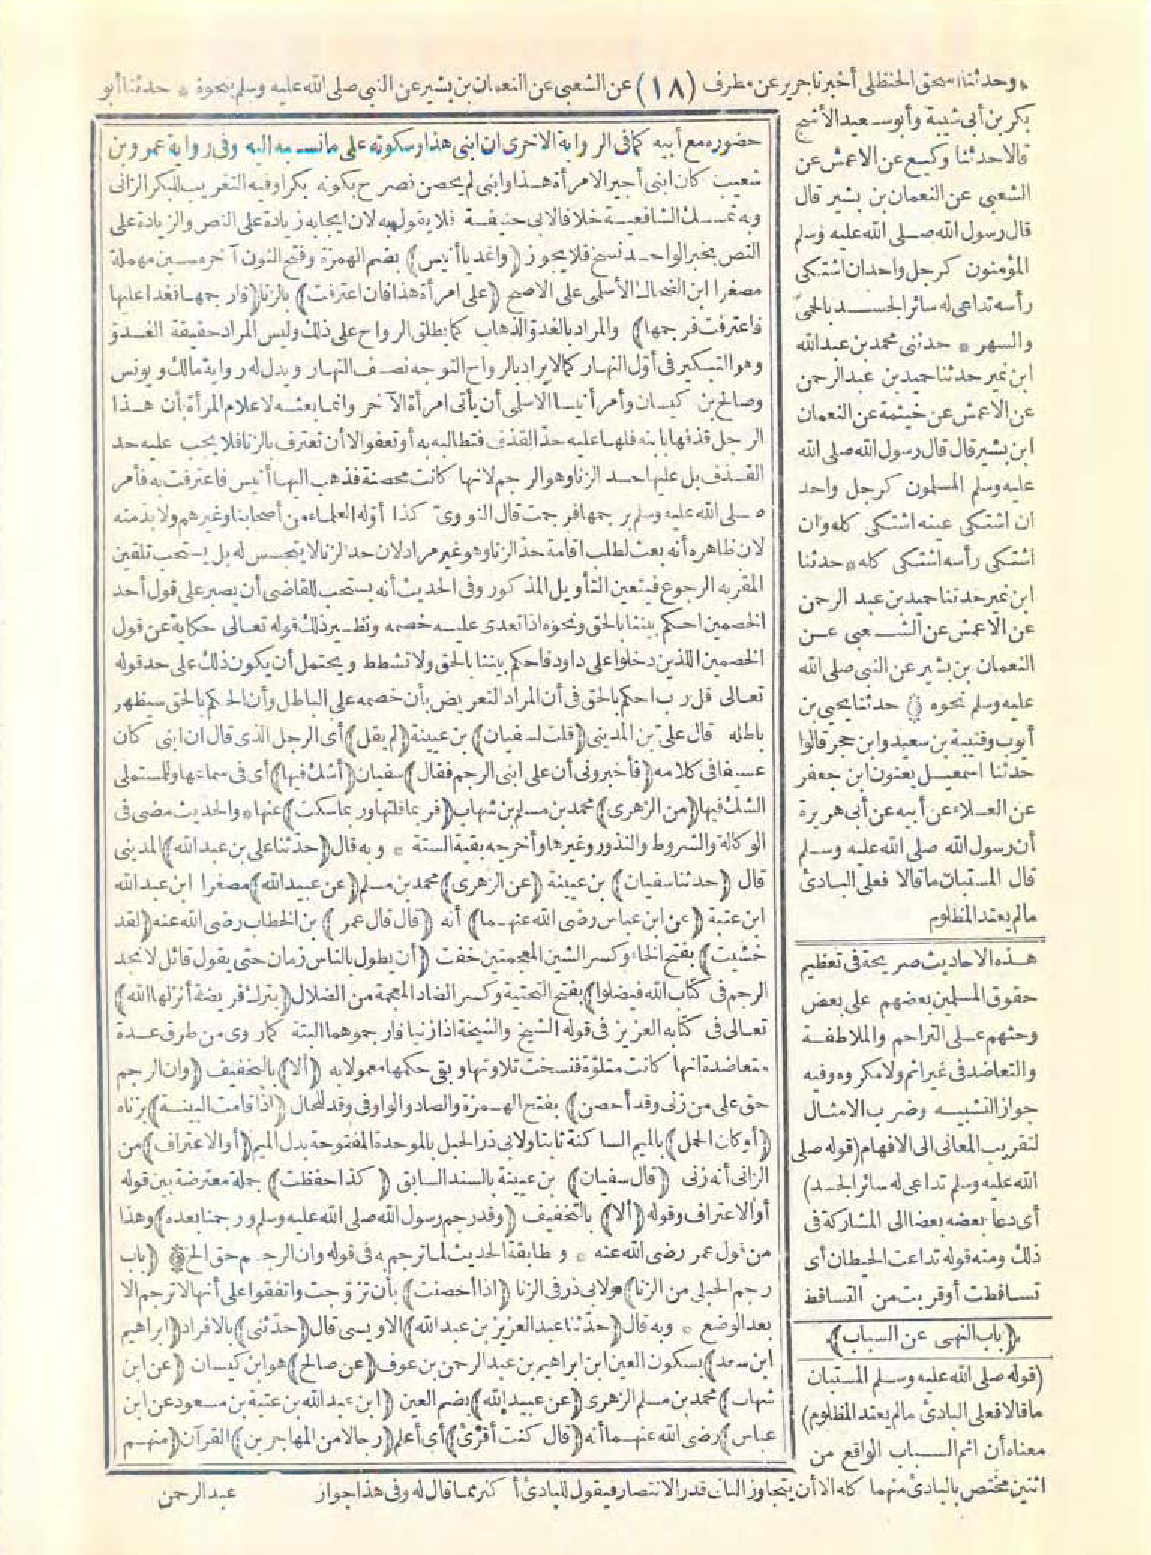 * وحدثنا اسحق الحنظلى أخبرنا جرير عن مطرف (١٨) عن الشعبى عن النعمان بن بشير عن النبى صلى الله عليه وسلم بنحوه * حدثنا أبو
بكر بن أبى شيبة وأبو سعيد الأشج
قالا حدثنا وكيع عن الاعمش عن
الشعبى عن النعمان بن بشير قال
قال رسول الله صلى الله عليه وسلم
المؤمنون كرجل واحد ان اشتكى
رأسه تداعى له سائر الجسد بالحمى
والسهر * حدثنى محمد بن عبد الله
ابن نمير حدثنا حميد بن عبد الرحمن
عن الاعمش عن خيثمة عن النعمان
ابن بشير قال قال رسول الله صلى الله
عليه وسلم المسلمون كرجل واحد
ان اشتكى عينه اشتكى كله وان
اشتكى رأسه اشتكى كله * حدثنا
ابن نمير حدثنا حميد بن عبد الرحمن
عن الاعمش عن الشعبى عن
النعمان بن بشير عن النبى صلى الله
عليه وسلم نحوه حدثنا يحيى بن
أيوب وقتيبة بن سعيد وابن حجر قالوا
حدثنا اسمعيل يعنون ابن جعفر
عن العلاء عن أبيه عن أبى هريرة
أن رسول الله صلى الله عليه وسلم
قال المستبان ما قالا فعلى البادئ
مالم يعتد المظلوم
هذه الاحاديث صريحة فى تعظيم
حقوق المسلمين بعضهم على بعض
وحثهم على التراحم والملاطفة
والتعاضد فى غير اثم ولا مكروه وفيه
جواز التشبيه وضرب الامثال
لتقريب المعانى الى الافهام (قوله صلى
الله عليه وسلم تداعى له سائر الجسد)
أى دعا بعضه بعضا الى المشاركة فى
ذلك ومنه قوله تداعت الحيطان أى
تساقطت أو قربت من التساقط
(باب النهى عن السباب)
(قوله صلى الله عليه وسلم المستبان
ما قالا فعلى البادئ مالم يعتد المظلوم)
معناه أن اثم السباب الواقع من
اثنين مختص بالبادئ منهما كله الا أن يتجاوز الثانى قدر الانتصار فيقول للبادئ أكثر مما قال له وفى هذا جواز
حضوره مع أبيه كما فى الرواية الاخرى ان ابنى هذا وسكوته على ما نسبه اليه وفى رواية عمرو بن
شعيب كان ابنى أجير الامرأة هذا وابنى لم يحصن فصرح بكونه بكرا وفيه التغريب للبكر الزانى
وبه تمسك الشافعية خلافا لابى حنيفة فلا يقول به لان ايجابه زيادة على النص والزيادة على
النص بخبر الواحد نسخ فلا يجوز (واغد يا أنيس) بضم الهمزة وفتح النون آخره سين مهملة
مصغرا ابن الضحاك الأسلمى على الاصح (على امرأة هذا فان اعترفت) بالزنا (فارجمها فغدا عليها
فاعترفت فرجمها) والمراد بالغدو الذهاب كما يطلق الرواح على ذلك وليس المراد حقيقة الغدو
وهو التبكير فى أول النهار كما لا يراد بالرواح التوجه نصف النهار ويدل له رواية مالك ويونس
وصالح بن كيسان وأمر أنيسا الاسلمى أن يأتى امرأة الآخر وانما بعثه لاعلام المرأة بأن هذا
الرجل قذفها بابنه فلها عليه حد القذف فتطالبه به أو تعفو الا أن تعترف بالزنا فلا يجب عليه حد
القذف بل عليها حد الزنا وهو الرجم لانها كانت محصنة فذهب اليها أنيس فاعترفت به فأمر
صلى الله عليه وسلم برجمها فرجمت قال النووى كذا أوله العلماء من أصحابنا وغيرهم ولا بد منه
لان ظاهره أنه بعث لطلب اقامة حد الزنا وهو غير مراد لان حد الزنا لا يتجسس له بل يستحب تلقين
المقربه الرجوع فيتعين التأويل المذكور وفى الحديث أنه يستحب للقاضى أن يصبر على قول أحد
الخصمين احكم بيننا بالحق ونحوه اذا تعدى عليه خصمه ونظير ذلك قوله تعالى حكاية عن قول
الخصمين اللذين دخلوا على داود فاحكم بيننا بالحق ولا تشطط ويحتمل أن يكون ذلك على حد قوله
تعالى قل رب احكم بالحق فى أن المراد التعريض بأن خصمه على الباطل وأن الحكم بالحق سيظهر
باطله قال على بن المدينى (قلت لسفيان) بن عيينة (لم يقل) أى الرجل الذى قال ان ابنى كان
عسيفا فى كلامه (فأخبرونى أن على ابنى الرجم فقال) سفيان (أشك فيها) أى فى سماعها وللمستملى
الشك فيها (من الزهرى) محمد بن مسلم بن شهاب (فربما قلتها وربما سكت) عنها * والحديث مضى فى
الوكالة والشروط والنذور وغيرها وأخرجه بقية الستة * وبه قال (حدثنا على بن عبد الله) المدينى
قال (حدثنا سفيان) بن عيينة (عن الزهرى) محمد بن مسلم (عن عبيد الله) مصغرا ابن عبد الله
ابن عتبة (عن ابن عباس رضى الله عنهما) أنه (قال قال عمر) بن الخطاب رضى الله عنه (لقد
خشيت) بفتح الخاء وكسر الشين المعجمتين خفت (أن يطول بالناس زمان حتى يقول قائل لا نجد
الرجم فى كتاب الله فيضلوا) بفتح التحتية وكسر الضاد المعجمة من الضلال (بترك فريضة أنزلها الله)
تعالى فى كتابه العزيز فى قوله الشيخ والشيخة اذا زنيا فارجموهما البتة كما روى من طرق عدة
متعاضدة انها كانت متلوة فنسخت تلاوتها وبقى حكمها معمولا به (ألا) بالتخفيف (وان الرجم
حق على من زنى وقد أحصن) بفتح الهمزة والصاد والواو فى وقد للحال (اذا قامت البينة) بزناه
(أو كان الحمل) بالميم الساكنة ثابتا ولابى ذر الحبل بالموحدة المفتوحة بدل الميم (أو الاعتراف) من
الزانى أنه زنى (قال سفيان) بن عيينة بالسند السابق (كذا حفظت) جملة معترضة بين قوله
أو الاعتراف وقوله (ألا) بالتخفيف (وقد رجم رسول الله صلى الله عليه وسلم ورجمنا بعده) وهذا
من قول عمر رضى الله عنه * ومطابقة الحديث لما ترجم به فى قوله وان الرجم حق الخ (باب
رجم الحبلى من الزنا) ولابى ذر فى الزنا (اذا أحصنت) بأن تزوجت واتفقوا على أنها لا ترجم الا
بعد الوضع * وبه قال (حدثنا عبد العزيز بن عبد الله) الاويسى قال (حدثنى) بالافراد (ابراهيم
ابن سعد) بسكون العين ابن ابراهيم بن عبد الرحمن بن عوف (عن صالح) هو ابن كيسان (عن ابن
شهاب) محمد بن مسلم الزهرى (عن عبيد الله) بضم العين (ابن عبد الله بن عتبة بن مسعود عن ابن
عباس) رضى الله عنهما أنه (قال كنت أقرئ) أى أعلم (رجالا من المهاجرين) القرآن (منهم
عبد الرحمن